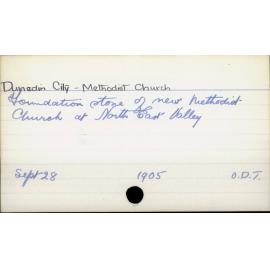 Dunedin City - Methodist Church
Foundation stone of new Methodist
Church at North East Valley
Sept 28 1905 O.D.T.